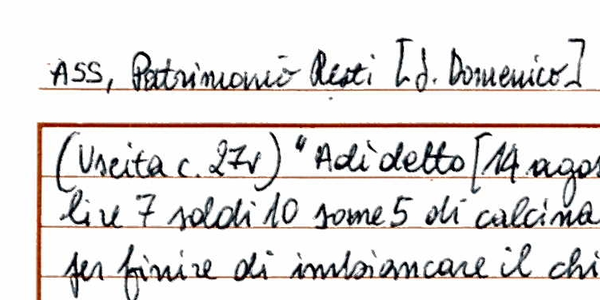 ASS, Patrimonio Resti [S. Domenico]
(Uscita c. 27v) "Adi detto [14 agos
lire 7 soldi 10 some 5 di calcina
per finire di imbiancare il chi